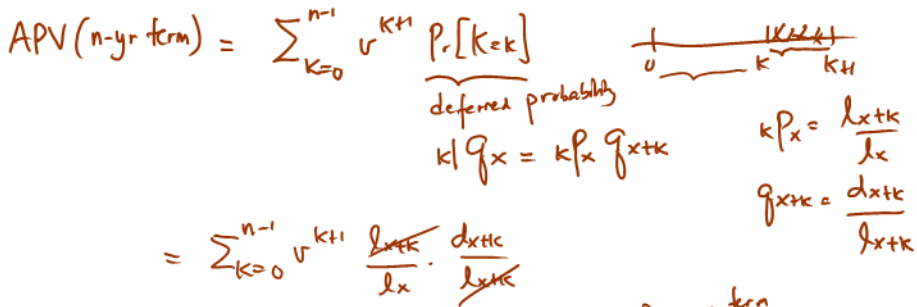 APV (n-yr term) = ∑_{k=0}^{n-1} v^{k+1} Pr[K=k]
0 k k+1
deferred probability
k|qx = kPx qx+k
kPx = lx+k / lx
qx+k = dx+k / lx+k
= ∑_{k=0}^{n-1} v^{k+1} lx+k / lx · dx+k / lx+k
term